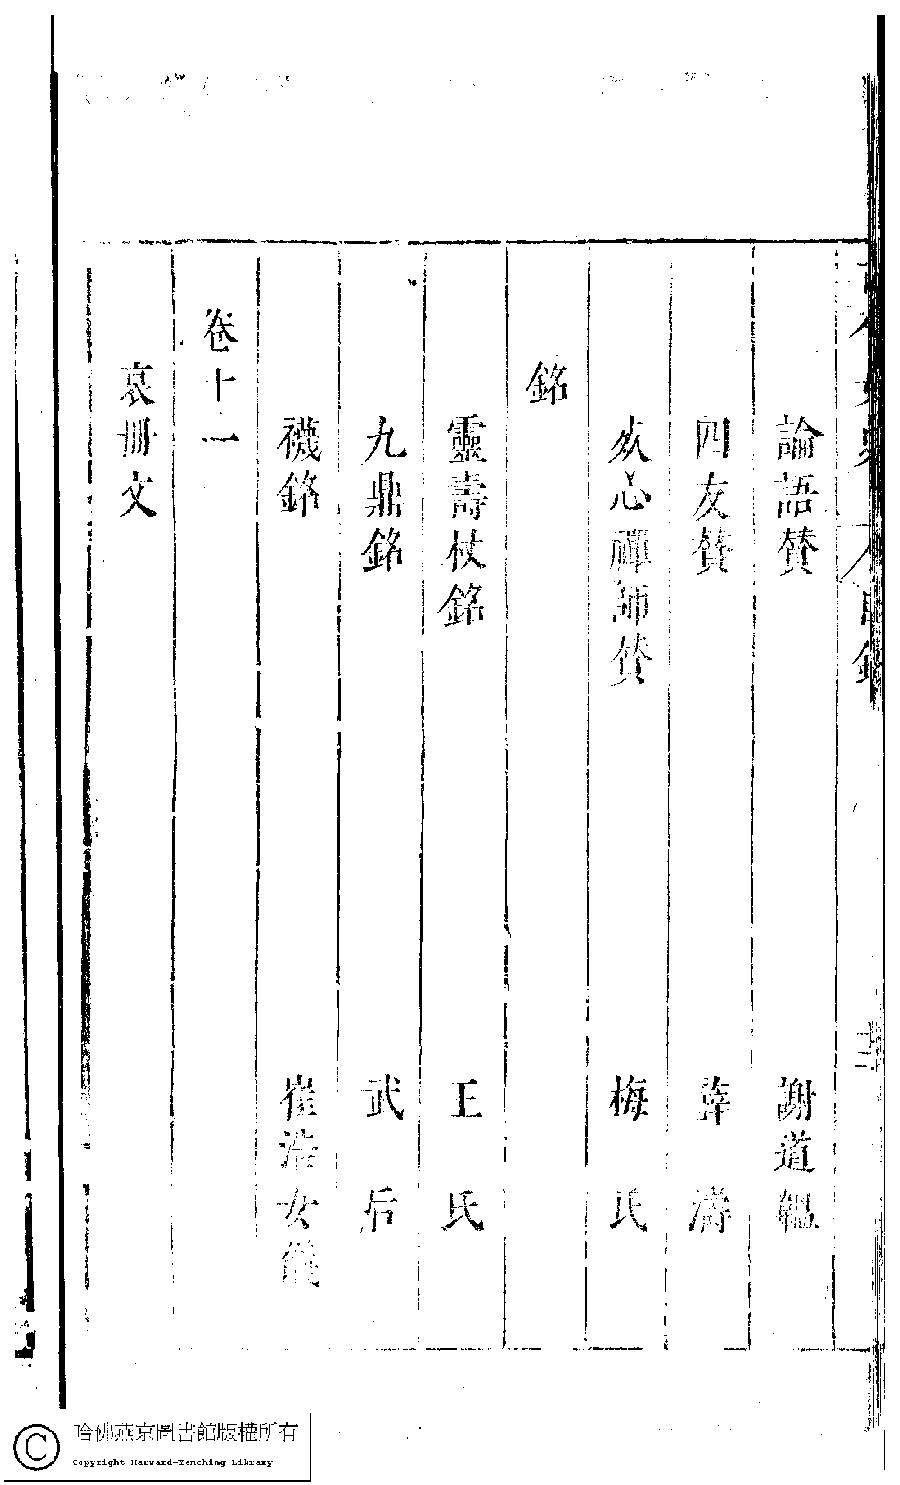 論語賛 謝道韞
四友賛 薛濤
心禪師賛 梅氏
銘
靈壽杖銘 王氏
九鼎銘 武后
襪銘 崔浩女儀
卷十二
哀册文
哈佛燕京圖書館版權所有
Copyright Harvard-Yenching Library